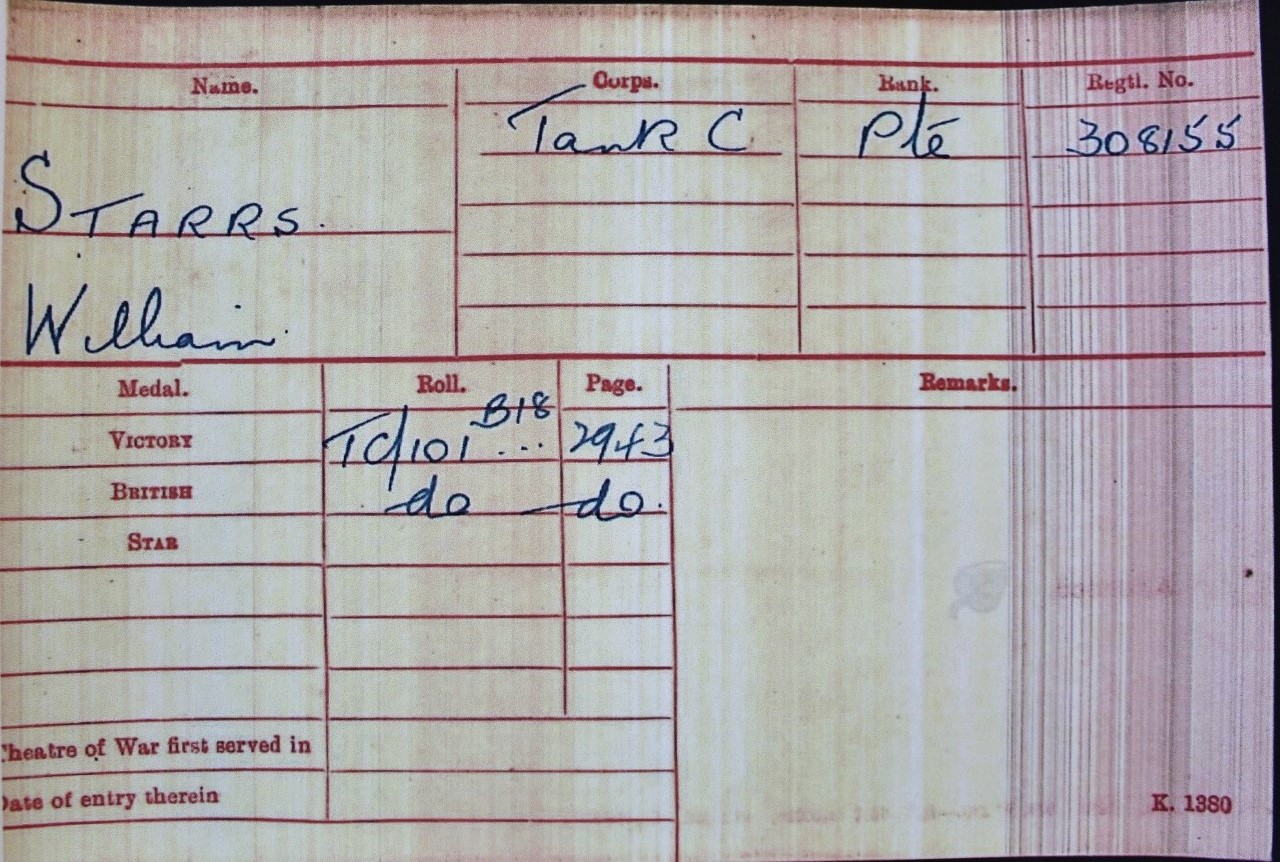 Name. Corps. Rank. Regtl. No.
Tank C Pte 308155
STARRS.
William
Medal. Roll. Page. Remarks.
VICTORY TC/101 B18 ... 2943
BRITISH do do.
STAR
Theatre of War first served in
Date of entry therein
K. 1380